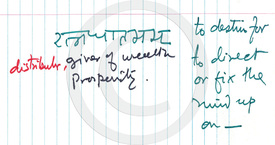 रत्नधातमम
distributer, giver of wealth
Prosperity.
to destin for
to direct
or fix the
mind up
on —